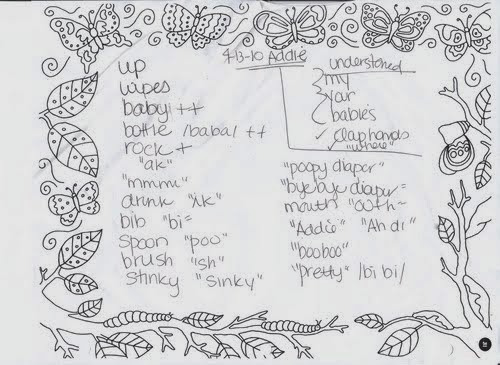 4-13-10 Addie
understoned
my
your
babies
✓ clap hands
"where"
up
wipes
baby ++
bottle /baba/ ++
rock +
"ak"
"mmmm"
drink "ik"
bib "bi=
spoon "poo"
brush "sh"
stinky "sinky"
"poopy diaper"
"bye bye diaper=
mouth "outh~
"Addie" "Ah di"
"booboo"
"pretty" /bi bi/